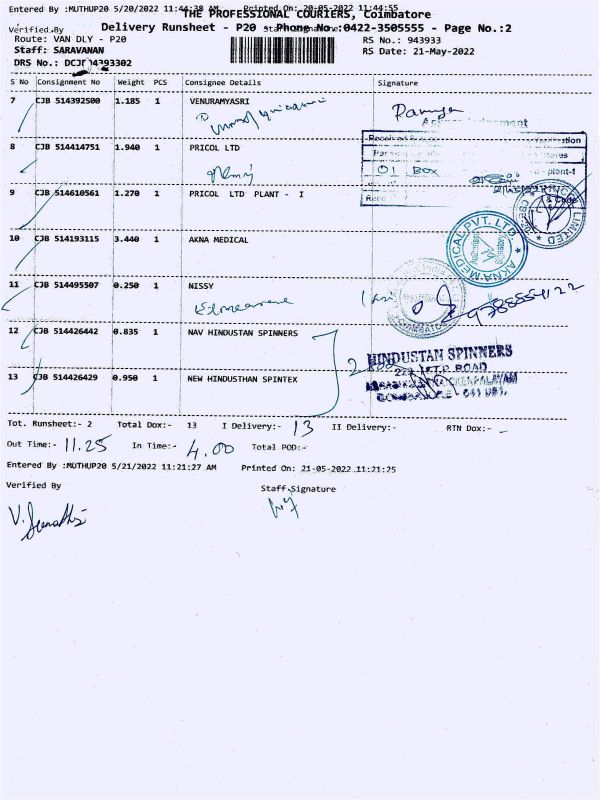 Entered By :MUTHUP20 5/20/2022 11:44:38 AM Printed On: 20-05-2022 11:44:55
THE PROFESSIONAL COURIERS, Coimbatore
Verified By
Delivery Runsheet - P20 Phone No.:0422-3505555 - Page No.:2
Route: VAN DLY - P20 RS No.: 943933
Staff: SARAVANAN RS Date: 21-May-2022
DRS No.:
S No Consignment No Weight PCS Consignee Details Signature
7 CJB 514392500 1.185 1 VENURAMYASRI
8 CJB 514414751 1.940 1 PRICOL LTD
01 Box
9 CJB 514610561 1.270 1 PRICOL LTD PLANT - I
10 CJB 514193115 3.440 1 AKNA MEDICAL
AKNA MEDICAL PVT. LTD.
11 CJB 514495507 0.250 1 NISSY
12 CJB 514426442 0.835 1 NAV HINDUSTAN SPINNERS
HINDUSTAN SPINNERS
13 CJB 514426429 0.950 1 NEW HINDUSTHAN SPINTEX
Tot. Runsheet:- 2 Total Dox:- 13 I Delivery:- 13 II Delivery:- RTN Dox:- -
Out Time:- 11.25 In Time:- 4.00 Total POD:-
Entered By :MUTHUP20 5/21/2022 11:21:27 AM Printed On: 21-05-2022 11:21:25
Verified By Staff Signature